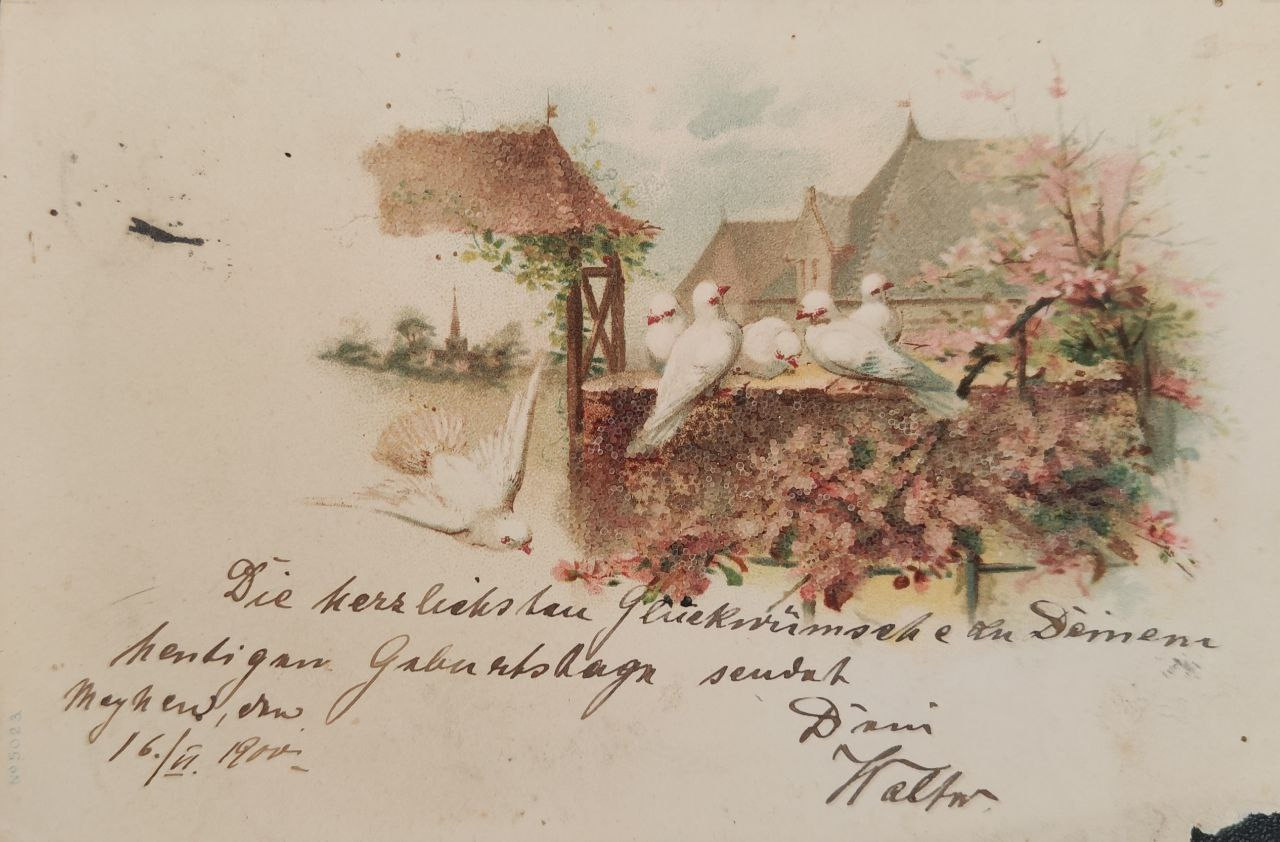 Die herzlichsten Glückwünsche zu Deinem
heutigen Geburtstage sendet
Meyhen, den
16./II. 1900.
Dein
Walter
No 5023